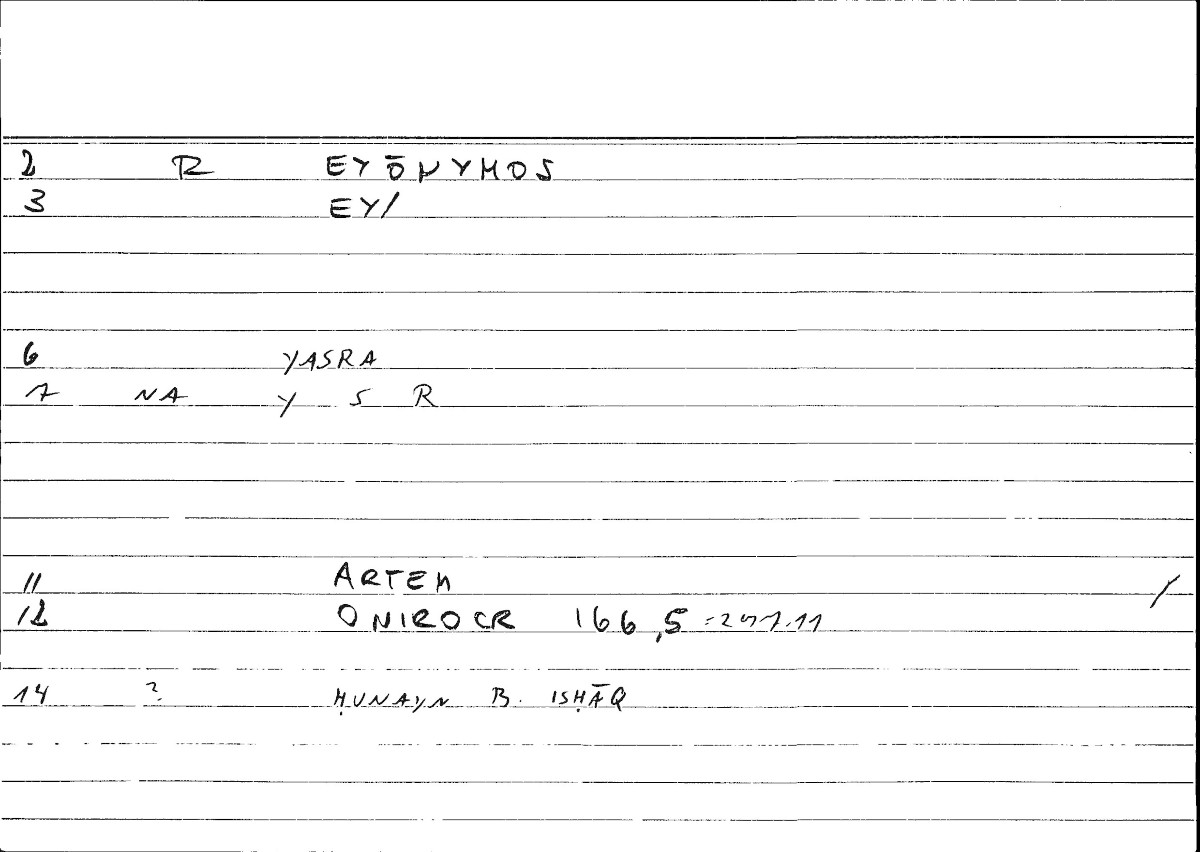 2 R EYŌNYMOS
3 EY/
6 YASRA
7 NA Y S R
11 ARTEM /
12 ONIROCR 166,5 = 297.11
14 ? ḤUNAYN B. ISḤĀQ